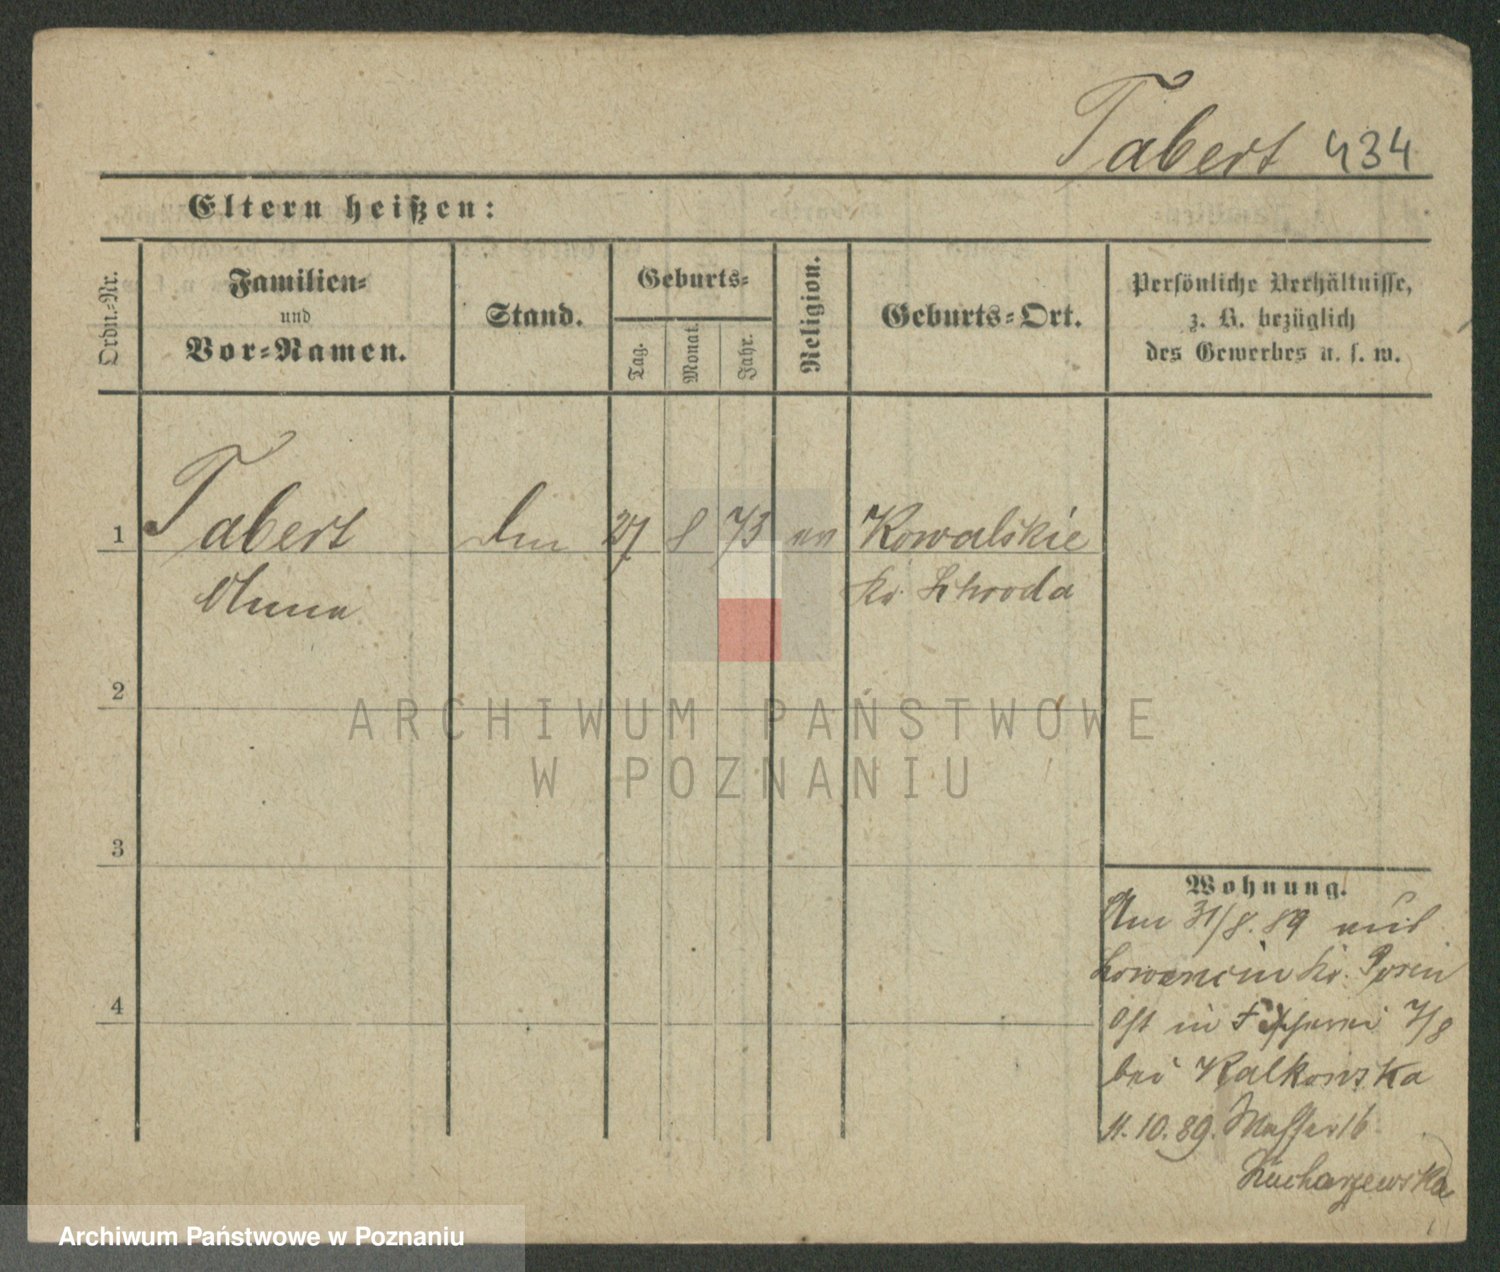 Tabert 434
Eltern heißen:
Ordn.-Nr.
Familien-
und
Vor-Namen.
Stand.
Geburts-
Tag.
Monat.
Jahr.
Religion.
Geburts-Ort.
Persönliche Verhältnisse,
z. B. bezüglich
des Gewerbes u. s. w.
1 Tabert 27 8 73 Kowalskie
Anna Kr. Schroda
2
3
4
ARCHIWUM PAŃSTWOWE
W POZNANIU
Wohnung.
Am 31/8. 89 aus
Kr. Posen
Ost in 7/8
bei Kalkowska
11. 10. 89. Wasser 16
Archiwum Państwowe w Poznaniu